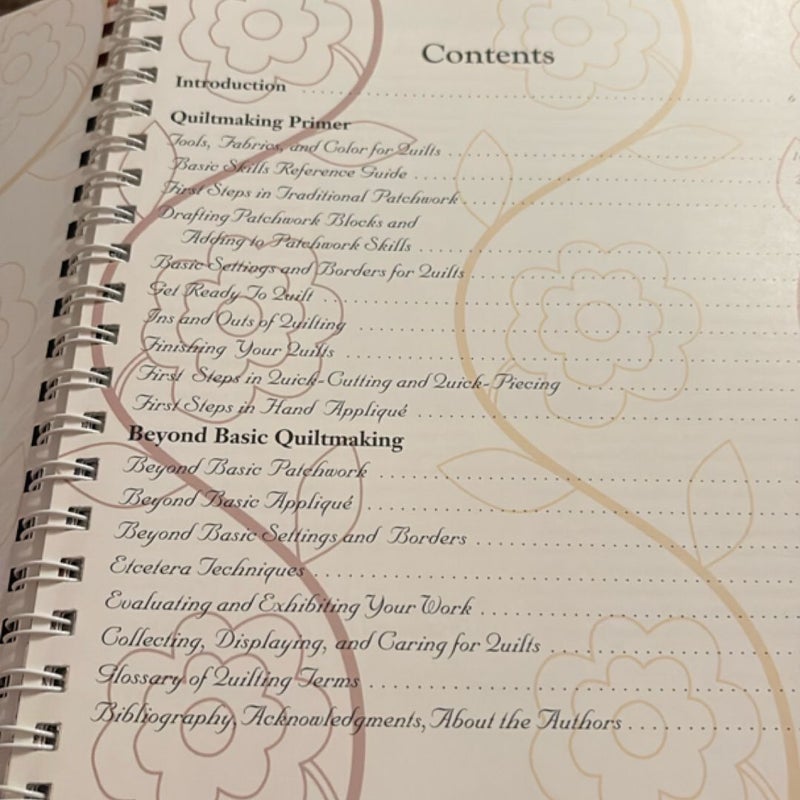 Contents
Introduction
Quiltmaking Primer
Tools, Fabrics, and Color for Quilts
Basic Skills Reference Guide
First Steps in Traditional Patchwork
Drafting Patchwork Blocks and
Adding to Patchwork Skills
Basic Settings and Borders for Quilts
Get Ready To Quilt
Ins and Outs of Quilting
Finishing Your Quilts
First Steps in Quick-Cutting and Quick-Piecing
First Steps in Hand Appliqué
Beyond Basic Quiltmaking
Beyond Basic Patchwork
Beyond Basic Appliqué
Beyond Basic Settings and Borders
Etcetera Techniques
Evaluating and Exhibiting Your Work
Collecting, Displaying, and Caring for Quilts
Glossary of Quilting Terms
Bibliography, Acknowledgments, About the Authors